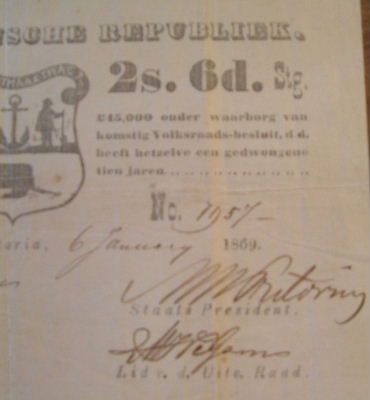 NSCHE REPUBLIEK.
2s. 6d. Stg.
£45,000 onder waarborg van
komstig Volksraads-besluit, d.d.
heeft hetzelve een gedwongene
tien jaren
No. 1957
toria, 6 January 1869.
MWPretorius
Staats President.
Lid v. d. Uitv. Raad.